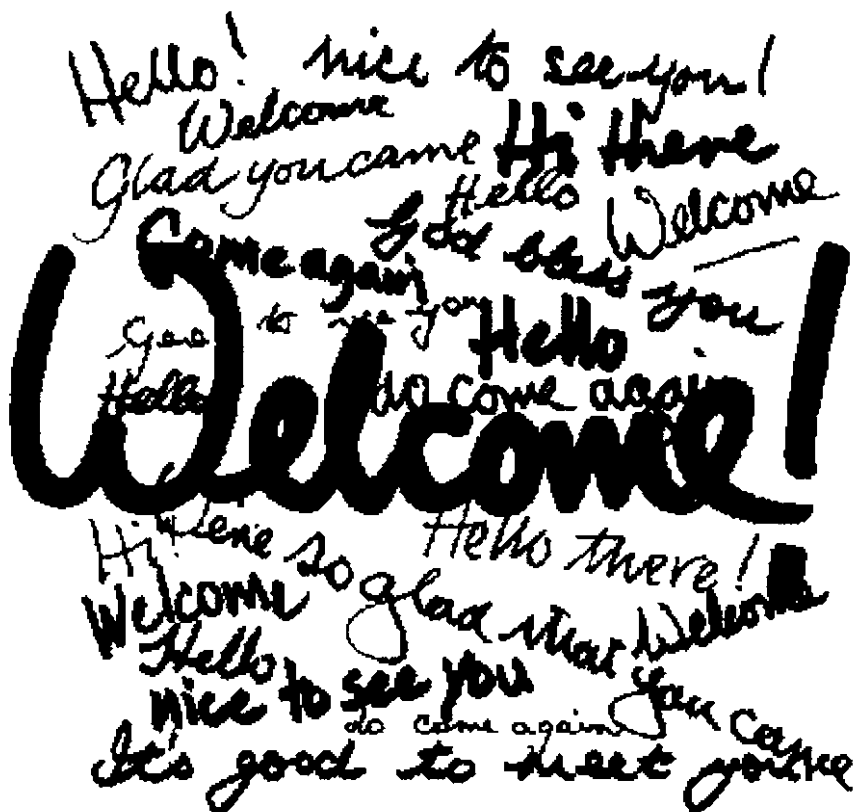 Hello! nice to see you!
Welcome
Glad you came Hi there
Hello Welcome
God bless you
Come again
Good to see you
Hello
Hello do come again
Welcome!
Hi! Hello there!
We're so glad that you came
Welcome Welcome
Hello
nice to see you
do come again
It's good to meet you